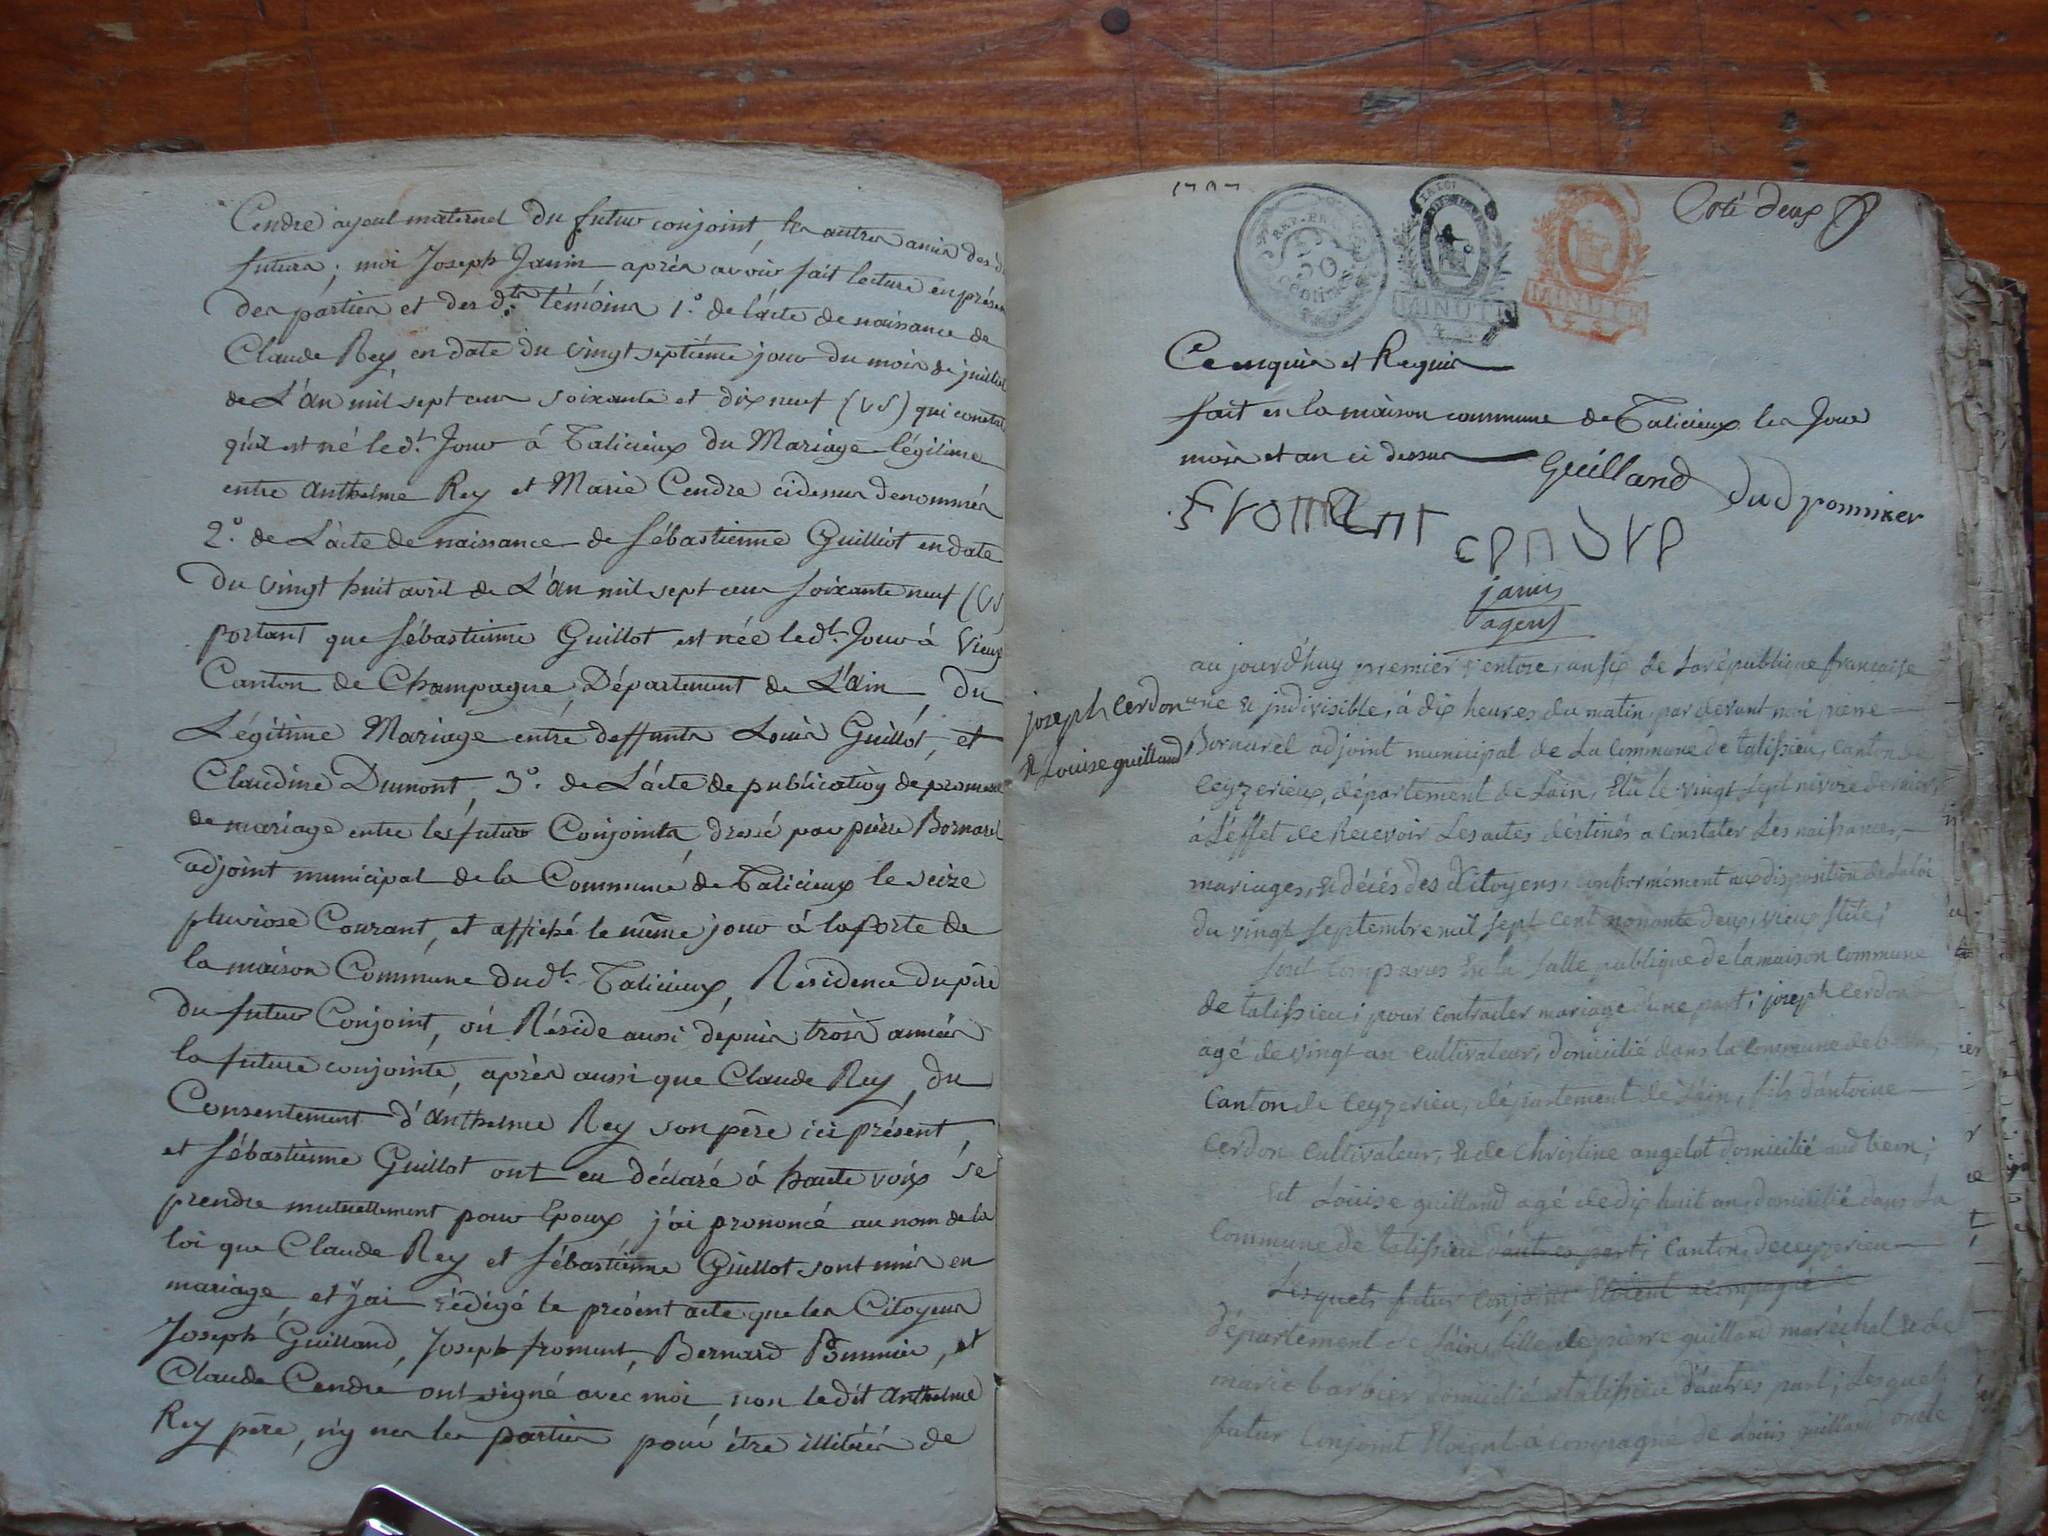 Cendre ayeul maternel du futur conjoint, les autres amis des d
futurs; moi Joseph Janin après avoir fait lecture en présen
des parties et des dts témoins 1º. de l'acte de naissance de
Claude Rey, en date du vingt septième jour du mois de juillet
de L'an mil sept cens soixante et dix neuf (VS) qui constate
qu'il est né led.t Jour à Talicieux du Mariage légitime
entre Anthelme Rey et Marie Cendre cidessus denommés
2º. de L'acte de naissance de Sébastienne Guilliot en date
du vingt huit avril de L'an mil sept cens soixante neuf (VS
portant que Sébastienne Guillot est née led.t Jour à Vieux
Canton de Champagne, Département de L'ain, du
Légitime Mariage entre deffunts Louis Guillot, et
Claudine Dumont, 3º. de L'acte de publication de promesse
de mariage entre les futurs Conjoints, dressé par pierre Bornarel
adjoint municipal de la Commune de Talicieux le seize
pluviose Courant, et affiché le même jour à la porte de
la maison Commune dud.t Talicieux, Résidence du père
du futur Conjoint, où Réside aussi depuis trois années
la future conjointe, après aussi que Claude Rey, du
Consentement d'Anthelme Rey son père ici présent,
et Sébastienne Guillot ont eu déclaré à haute voix se
prendre mutuellement pour Epoux j'ai prononcé au nom de la
loi que Claude Rey et Sébastienne Guillot sont unis en
mariage et j'ai rédigé le présent acte que les Citoyens
Joseph Guilland, Joseph froment, Bernard Pommier, et
Claude Cendre ont signé avec moi non ledit Anthelme
Rey père, n'y nen les parties pour être illitérés de
Coté deux
RÉP. FRA
50
Centimes
MINUTE
MINUTE
Ce enquis et Requis
fait en la maison commune de Talicieux les Jour
mois et an ci dessus Guilland
dud pommier
Froment
cendre
janin
agent
joseph cerdon
& Louise guilland
au jourd'huy premier ventose, an six de la république française
une & jndivisible, à dix heures du matin, par devant moi pierre
Bornarel adjoint municipal de La Commune de talissieu, canton de
Ceyzerieux, département de Lain, Elu le vingt sept nivoze dernier,
à L'effet de Recevoir Les actes déstinés a constater Les naissances,
mariages, & décés des Citoyens, conformément aux disposition de La loi
du vingt septembre mil sept cent nonante deux, vieux stile;
sont comparus En la salle publique de la maison commune
de talissieu; pour contracter mariage d'une part; joseph cerdon
agé de vingt an cultivateur, domicilié dans la commune de
Canton de Ceyzerieu, département de Lain, fils d'antoine
Cerdon Cultivateur, & de Christine angelot domicilié aud beon;
Et Louise guilland agé de dix huit an, domicilié dans La
Commune de talissieu d'autres part; Canton de ceyzerieu
Lesquels futur conjoint Etoient acompagné de
département de Lain, fille de pierre guilland maréchal & de
marie barbier domicilié a talissieu d'autres part; Lesquels
futur Conjoint Etoient acompagné de Louis guilland oncle